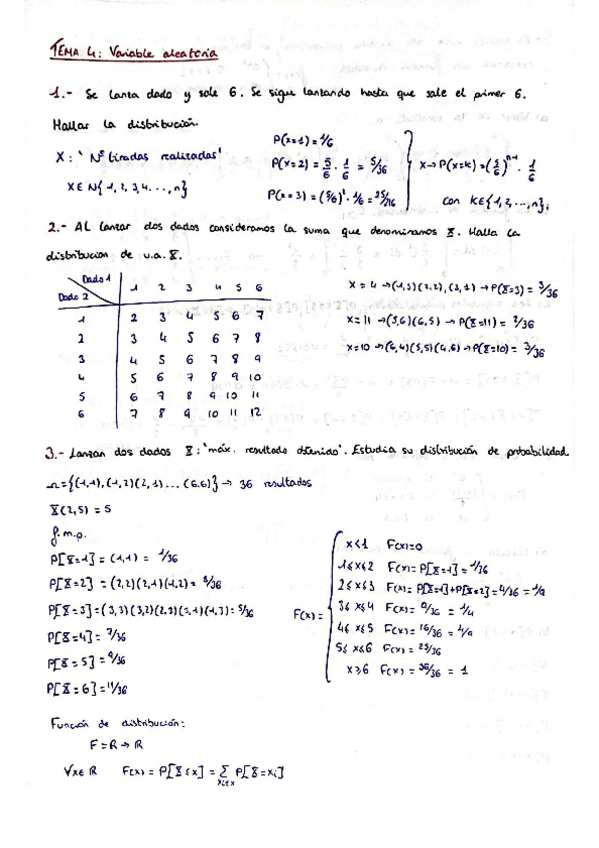 TEMA 4: Variable aleatoria
1.- Se lanza dado y sale 6. Se sigue lanzando hasta que sale el primer 6.
Hallar la distribución.
X: 'Nº tiradas realizadas'
X ∈ N{1, 2, 3, 4..., n}
P(x=1) = 1/6
P(x=2) = 5/6 · 1/6 = 5/36
P(x=3) = (5/6)² · 1/6 = 25/216
X → P(x=k) = (5/6)^n-1 · 1/6
con k∈{1,2,...,n};
2.- AL lanzar dos dados consideramos la suma que denominamos X. Halla la
distribucion de v.a. X.
Dado 1
Dado 2
1 2 3 4 5 6
1 2 3 4 5 6 7
2 3 4 5 6 7 8
3 4 5 6 7 8 9
4 5 6 7 8 9 10
5 6 7 8 9 10 11
6 7 8 9 10 11 12
x = 4 → (1,3)(2,2),(3,1) → P(X=3) = 3/36
x = 11 → (5,6)(6,5) → P(X=11) = 2/36
x=10 → (6,4)(5,5)(4,6) → P(X=10) = 3/36
3.- Lanzan dos dados X: 'máx. resultado obtenido'. Estudia su distribución de probabilidad.
Ω = {(1,1),(1,2)(2,1)...(6.6)} → 36 resultados
X(2,5) = 5
f.m.p.
P[X=1] = (1,1) = 1/36
P[X=2] = (2,2)(2,1)(1,2) = 3/36
P[X=3] = (3,3)(3,2)(2,3)(3,1)(1,3) = 5/36
P[X=4] = 7/36
P[X=5] = 9/36
P[X=6] = 11/36
F(x) =
x<1 F(x)=0
1≤x<2 F(x) = P[X=1] = 1/36
2≤x≤3 F(x) = P[X=1]+P[X=2] = 4/36 = 1/9
3≤x≤4 F(x) = 9/36 = 1/4
4≤x≤5 F(x) = 16/36 = 4/9
5≤x≤6 F(x) = 25/36
x≥6 F(x) = 36/36 = 1
Función de distribución:
F = R → R
∀x∈R F(x) = P[X≤x] = Σ xi≤x P[X=xi]